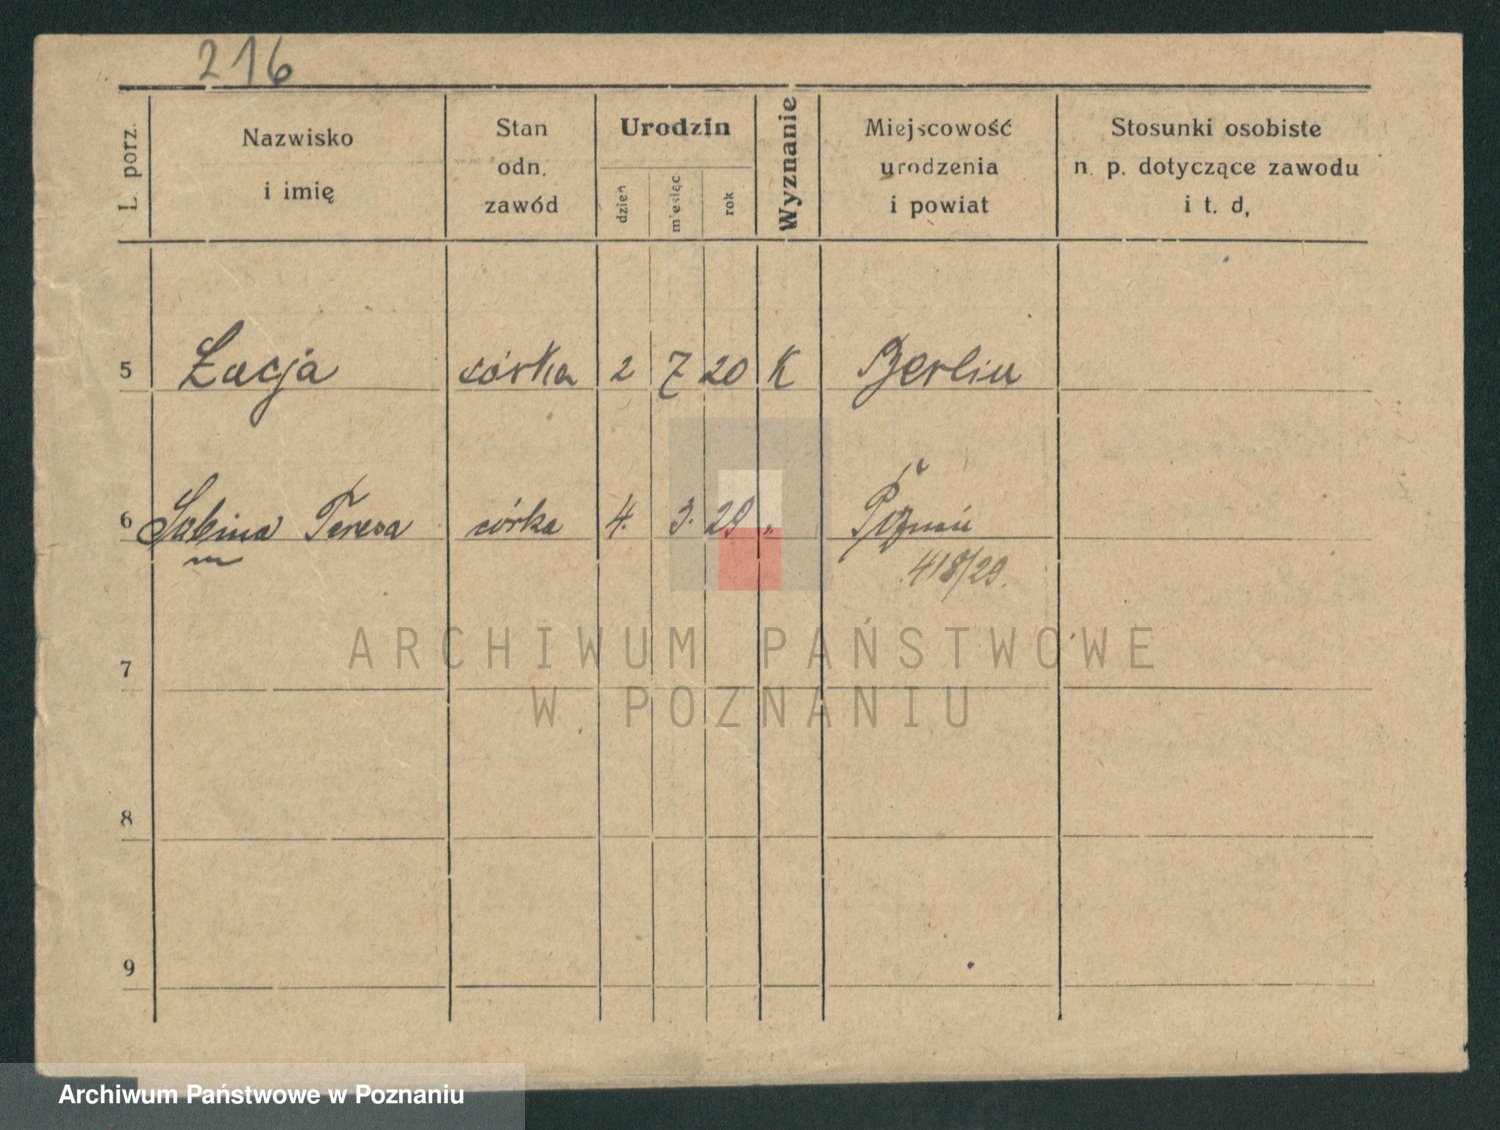 216
L. porz.
Nazwisko
i imię
Stan
odn.
zawód
Urodzin
dzień
miesiąc
rok
Wyznanie
Miejscowość
urodzenia
i powiat
Stosunki osobiste
n. p. dotyczące zawodu
i t. d,
5 Łucja córka 2 7 20 K Berlin
6 Sabina Teresa córka 4. 3. 29 „ Poznań
418/29.
ARCHIWUM PAŃSTWOWE
W POZNANIU
7
8
9
Archiwum Państwowe w Poznaniu